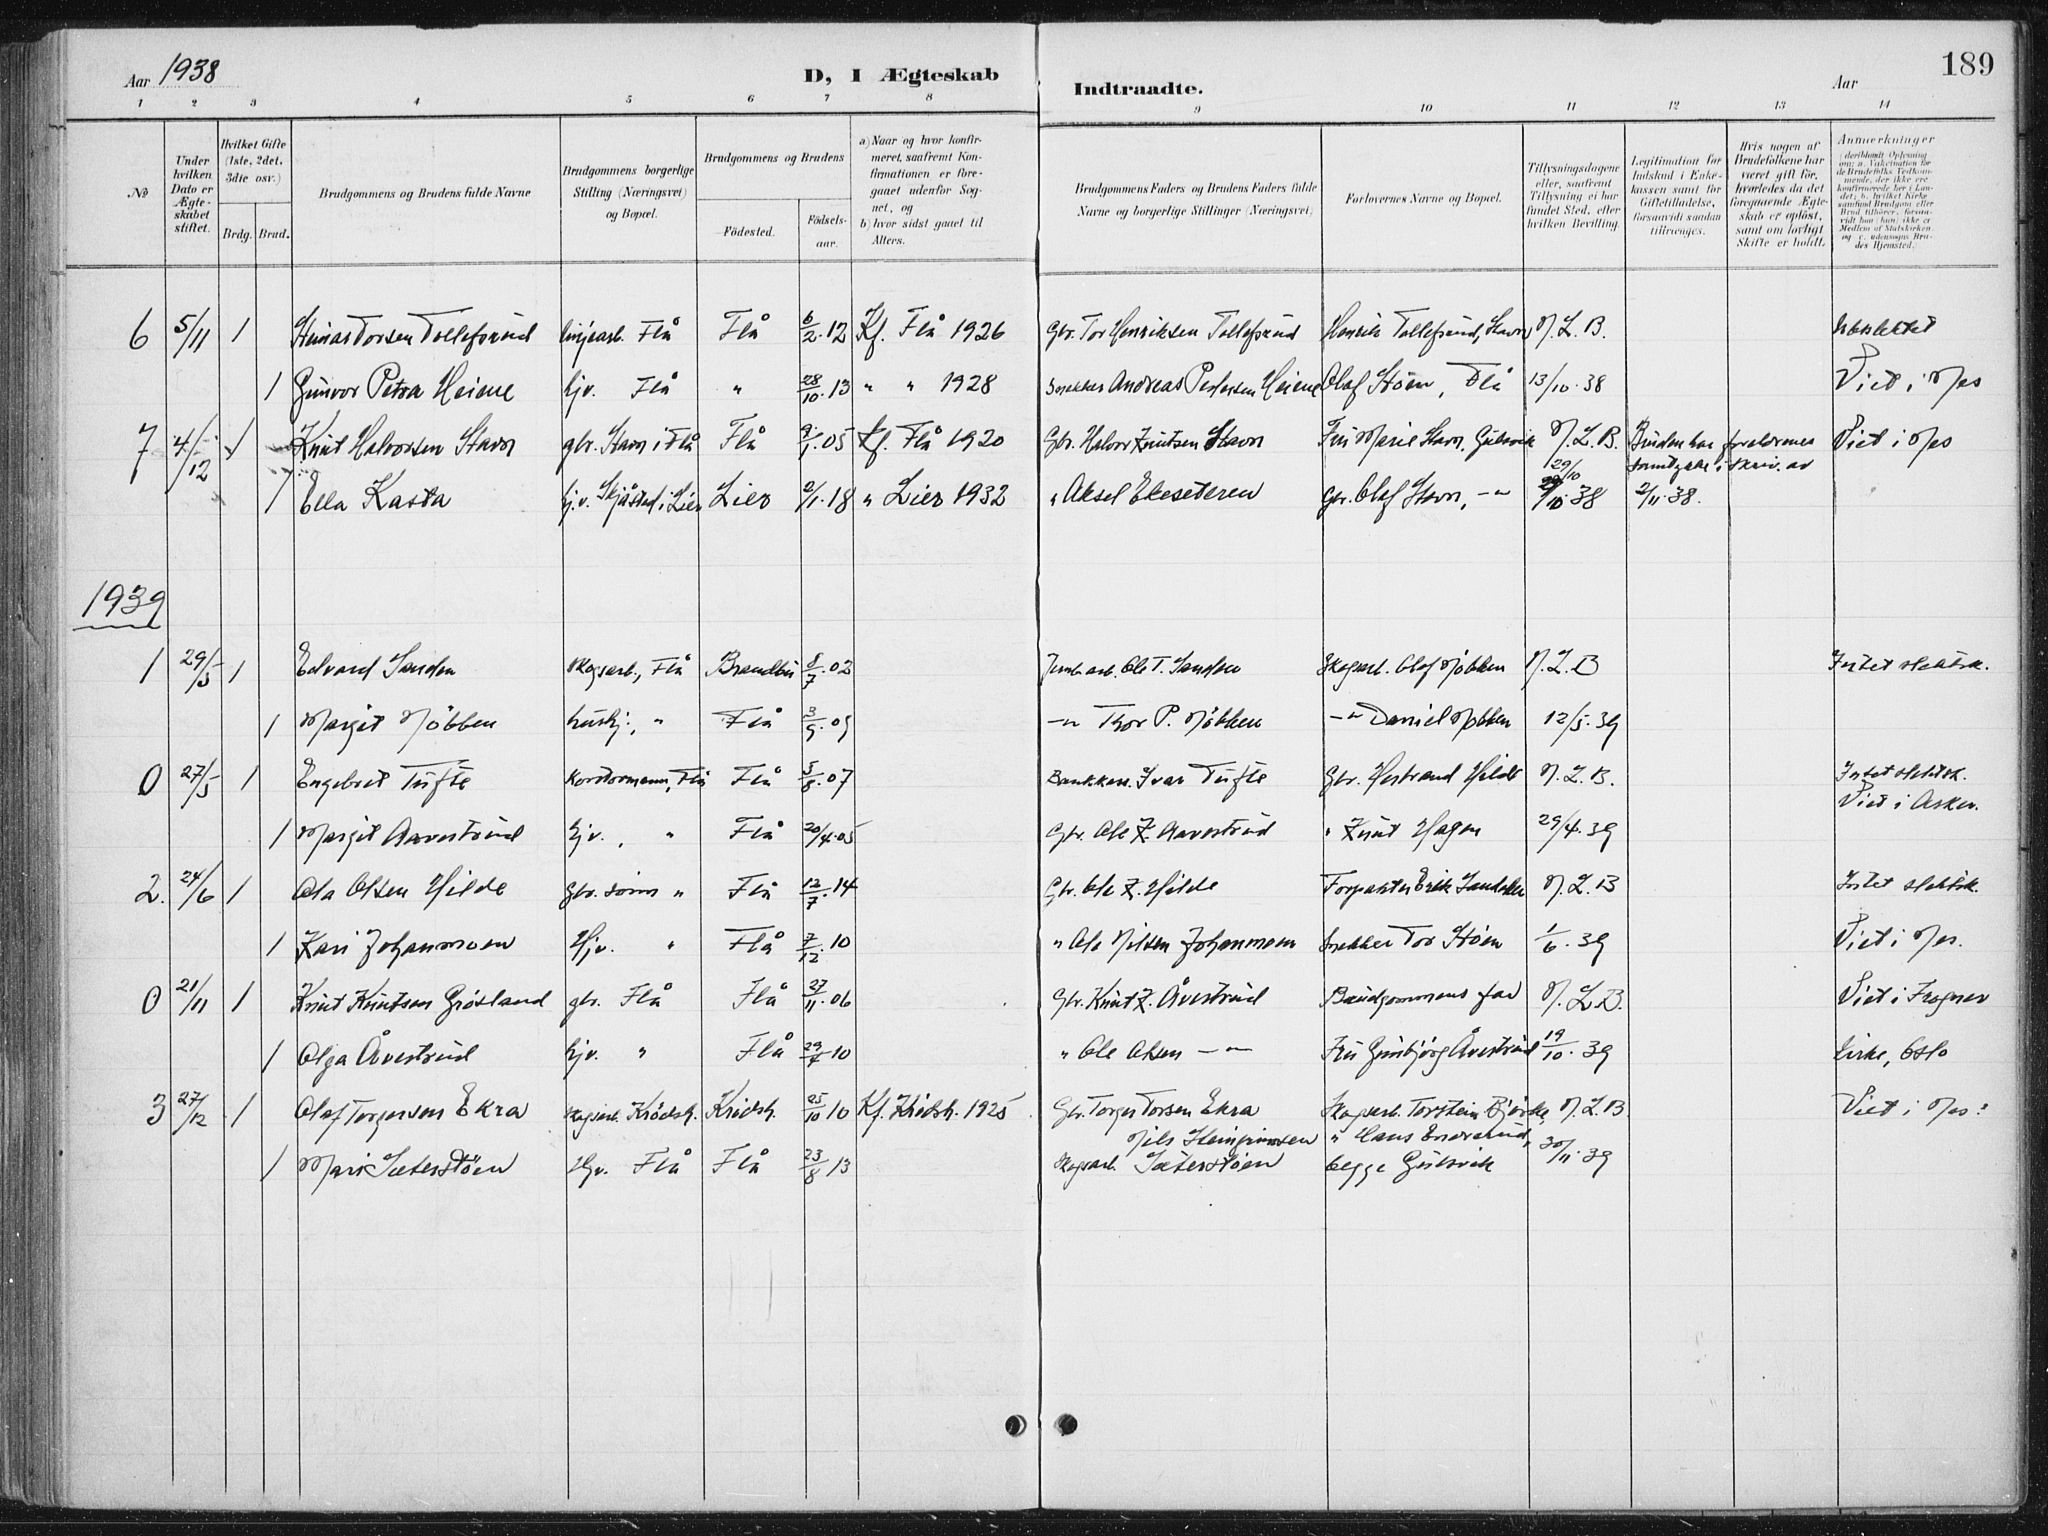 Aar 1938
D, I Ægteskab
Indtraadte.
Aar
189
1 2 3 4 5 6 7 8 9 10 11 12 13 14
No
Under hvilken Dato er Ægteskabet stiftet.
Hvilket Gifte (1ste, 2det, 3die osv.)
Brdg. Brud.
Brudgommens og Brudens fulde Navne
Brudgommens borgerlige Stilling (Næringsvei) og Bopæl.
Brudgommens og Brudens
Fødested. Fødselsaar.
a) Naar og hvor konfirmeret, saafremt Konfirmationen er foregaaet udenfor Sognet, og
b) hvor sidst gaaet til Alters.
Brudgommens Faders og Brudens Faders fulde Navne og borgerlige Stillinger (Næringsvei)
Forlovernes Navne og Bopæl.
Tillysningsdagene eller, saafremt Tillysning ei har fundet Sted, efter hvilken Bevilling.
Legitimation for Indskud i Enkekassen samt for Giftetilladelse, forsaavidt saadan tiltrænges.
Hvis nogen af Brudefolkene har været gift før, hvorledes da det foregaaende Ægteskab er opløst, samt om lovligt Skifte er holdt.
Anmerkninger
6 5/11 1 Torsen Tollefsrud linjearb. Flå Flå 6/2.12 Kf. Flå 1926 Gbr. Tor Henriksen Tollefsrud Henrik Tollefsrud, Stavn N.L.B.
1 Gunvor Petra Heiene hjv. Flå " 28/10.13 " " 1928 Snekker Andreas Pedersen Heiene Olaf Støen, Flå 13/10.38 Viet i Nes
7 4/12 1 Knut Halvorsen Stavn gbr. Stavn i Flå Flå 9/1.05 Kf. Flå 1920 Gbr. Halvor Knutsen Stavn Fru Marie Stavn, Gulsvik N.L.B. Bruden har foreldrenes Viet i Nes
29/10 samtykke i skriv. av
1 Ella Kasta hjv. i Lier Lier 2/1.18 " Lier 1932 " Aksel Ekeseteren Gbr. Olaf Stavn, -"- 10.38 2/11.38.
1939
1 29/5 1 Edvard Sanden skogsarb., Flå Brandbu 8/7.02 Jernb.arb. Ole T. Sanden Skogsarb. Olaf Møkken N.L.B Intet slektsk.
1 Margit Møbben hushj., " Flå 3/9.09 -"- Thor P. Møkken -"- Daniel Møkken 12/5.39
0 27/5 1 Engebret Tufte Kontormann, Flå Flå 5/8.07 Bankkass. Ivar Tufte Gbr. Hestrand Hilde N.L.B. Intet slektsk.
Viet i Asker.
1 Margit Aavestrud hjv., " Flå 20/4.05 Gbr. Ole K. Aavestrud " Knut Hagen 29/4.39
2. 24/6 1 Ola Olsen Hilde Gbr. sønn " Flå 12/7.14 Gbr. Ole K. Hilde Forpakter Erik N.L.B Intet slektsk.
1 Kari Johannmoen Hjv. " Flå 7/12.10 " Ola Nilsen Johannmoen Snekker Tor Støen 1/6.39 Viet i Nes.
0 21/11 1 Knut Knutsen Grøsland gbr. Flå Flå 27/11.06 Gbr. Knut K. Åvestrud Brudgommens far N.L.B. Viet i Frogner
1 Olga Åvestrud hjv. " Flå 29/4 10 " Ole Olsen -"- Fru Gunbjørg Åvestrud 19/10.39 kirke, Oslo
3 27/12 1 Olaf Torgersen Ekra skogsarb. Krødsh. Krødsh. 25/10 10 Kf. Krødsh. 1925 Gbr. Torger Torsen Ekra Skogsarb. Torstein Bjørke, N.L.B Viet i Nes.
Nils Steingrimsen " Hans Endrerud,
1 Mari Sæterstøen Hjv. Flå Flå 23/8 13 Skogsarb. Sæterstøen begge Gulsvik 30/11.39